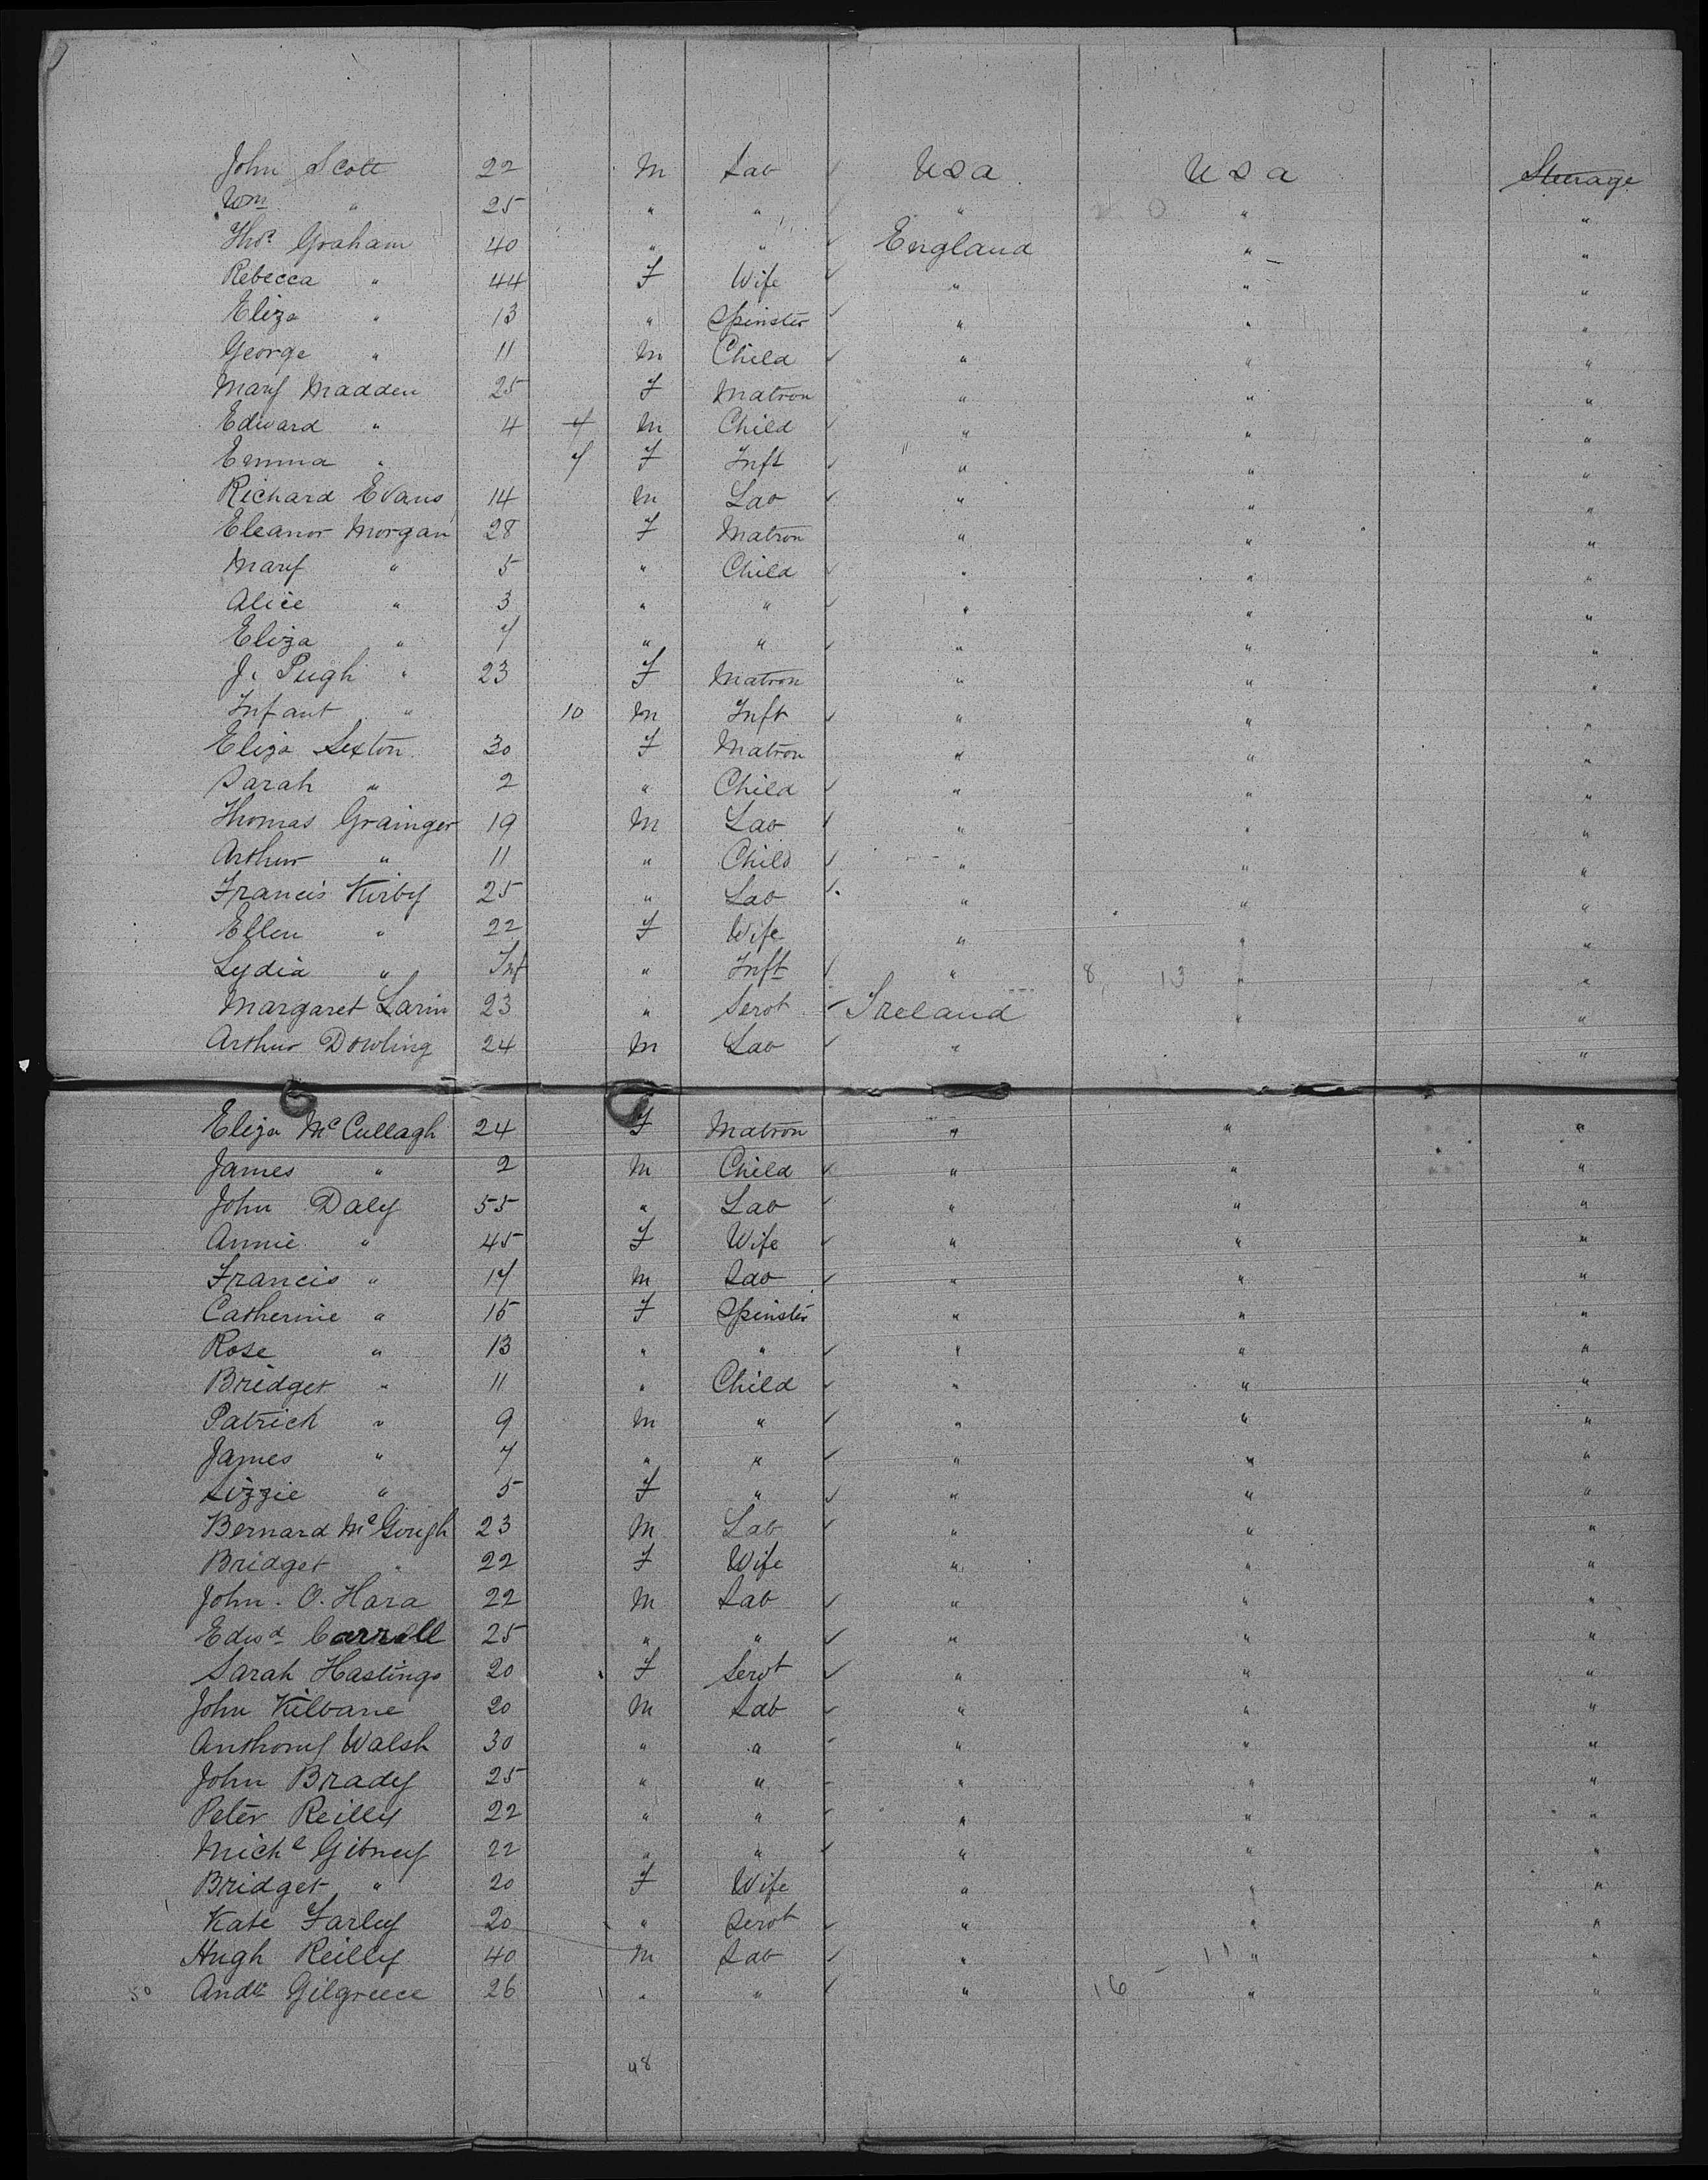 John Scott 22 M Lab ✓ USa USa Steerage
Wm " 25 " " ✓ " 20 " "
Thos Graham 40 " " ✓ England " "
Rebecca " 44 F Wife ✓ " " "
Eliza " 13 " Spinster ✓ " " "
George " 11 M Child ✓ " " "
Mary Madden 25 F Matron " " "
Edward " 4 M Child ✓ " " "
Emma " 7 F Inft ✓ " " "
Richard Evans 14 M Lab ✓ " " "
Eleanor Morgan 28 F Matron " " "
Mary " 5 " Child ✓ " " "
Alice " 3 " " ✓ " " "
Eliza " 7 " " ✓ " " "
J. Pugh " 23 F Matron " " "
Infant " 10 M Inft ✓ " " "
Eliza Sexton 30 F Matron " " "
Sarah " 2 " Child ✓ " " "
Thomas Grainger 19 M Lab ✓ " " "
Arthur " 11 " Child ✓ " " "
Francis Kirby 25 " Lab ✓ " " "
Ellen " 22 F Wife " " "
Lydia " Inf " Inft ✓ " 8, 13 " "
Margaret 23 " Servt Ireland " "
Arthur Dowling 24 M Lab ✓ " "
Eliza McCullagh 24 F Matron " " "
James " 2 M Child ✓ " " "
John Daly 55 " Lab ✓ " " "
Annie " 45 F Wife ✓ " " "
Francis " 17 M Lab ✓ " " "
Catherine " 15 F Spinster " " "
Rose " 13 " " ✓ " " "
Bridget " 11 " Child ✓ " " "
Patrick " 9 M " ✓ " " "
James " 7 " " ✓ " " "
Lizzie " 5 F " ✓ " " "
Bernard McGough 23 M Lab ✓ " " "
Bridget " 22 F Wife " " "
John. O. Hara 22 M Lab ✓ " " "
Edwd Carroll 25 " " ✓ " " "
Sarah Hastings 20 F Servt ✓ " " "
John Kilbane 20 M Lab ✓ " " "
Anthony Walsh 30 " " ✓ " " "
John Brady 25 " " " " "
Peter Reilly 22 " " ✓ " " "
Michl Gibney 22 " " ✓ " " "
Bridget " 20 F Wife " " "
Kate Farley 20 " Servt ✓ " " "
Hugh Reilly 40 M Lab ✓ " 11 " "
50 Andw Gilgreece 26 " " ✓ " 16 " "
48